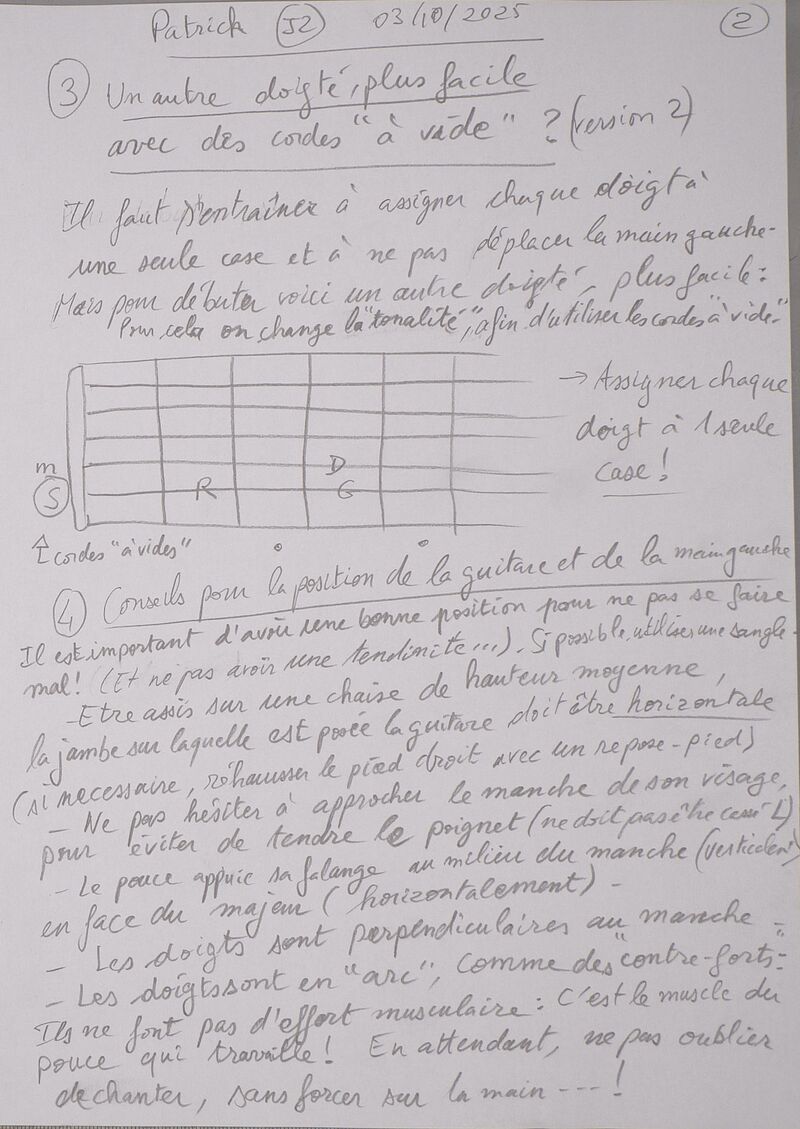 Patrick J2 03/10/2025 2
3 Un autre doigté, plus facile
avec des cordes "à vide" ? (version 2)
Il faut s'entraîner à assigner chaque doigt à
une seule case et à ne pas déplacer la main gauche-
Mais pour débuter voici un autre doigté, plus facile :
Pour cela on change la "tonalité", afin d'utiliser les cordes "à vide"-
→ Assigner chaque
doigt à 1 seule
case !
m D
S R G
↑ cordes "à vides"
4 Conseils pour la position de la guitare et de la main gauche
Il est important d'avoir une bonne position pour ne pas se faire
mal ! (Et ne pas avoir une tendinite...). Si possible, utiliser une sangle-
- Etre assis sur une chaise de hauteur moyenne,
la jambe sur laquelle est posée la guitare doit être horizontale
(si necessaire, réhausser le pied droit avec un repose-pied)
- Ne pas hésiter à approcher le manche de son visage,
pour éviter de tendre le poignet (ne doit pas être cassé L)
- Le pouce appuie sa falange au milieu du manche (verticalent)
en face du majeur (horizontalement) -
- Les doigts sont perpendiculaires au manche -
- Les doigts sont en "arc", comme des "contre-forts"-
Ils ne font pas d'effort musculaire : C'est le muscle du
pouce qui travaille ! En attendant, ne pas oublier
de chanter, sans forcer sur la main --- !